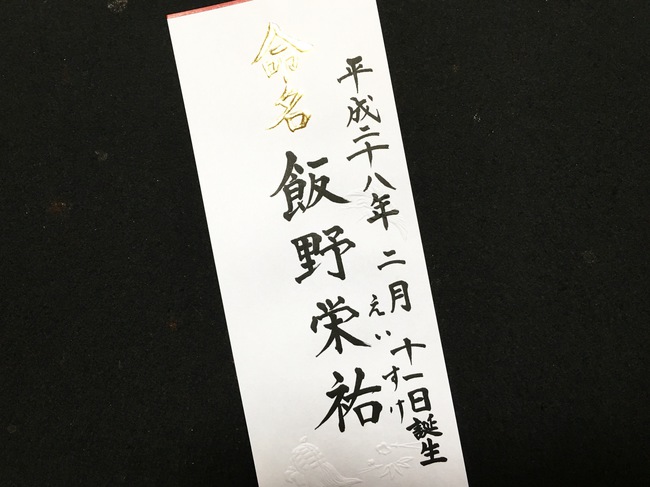 平成二十八年 二月 十一日誕生
命名
飯野栄祐
えいすけ